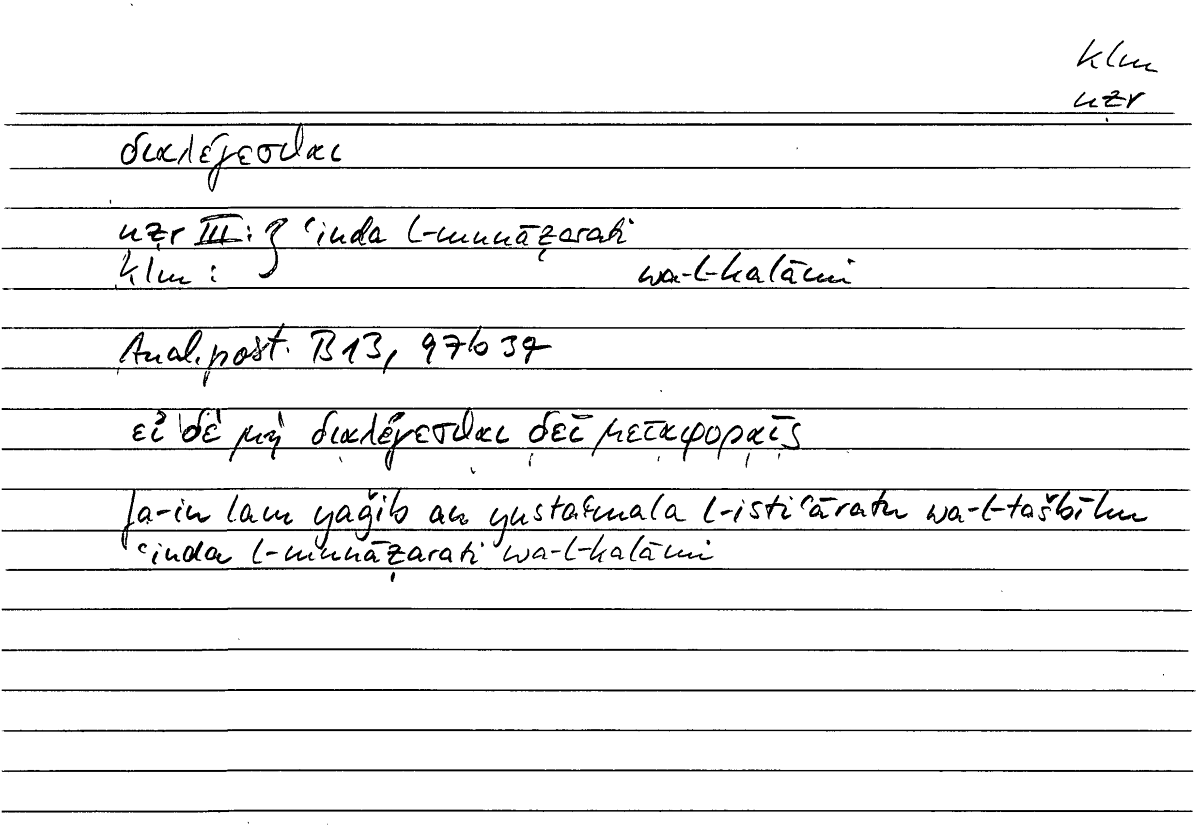 klm
nẓr
διαλέγεσθαι
nẓr III: } ʿinda l-munāẓarati
klm : wa-l-kalāmi
Anal. post. B 13, 97b 37
εἰ δὲ μὴ διαλέγεσθαι δεῖ μεταφοραῖς
fa-in lam yaǧib an yustaʿmala l-istiʿāratu wa-l-tašbīhu
ʿinda l-munāẓarati wa-l-kalāmi